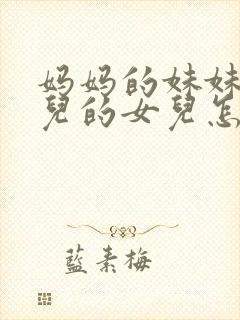 妈妈的妹妹
兒的女兒怎
藍素梅